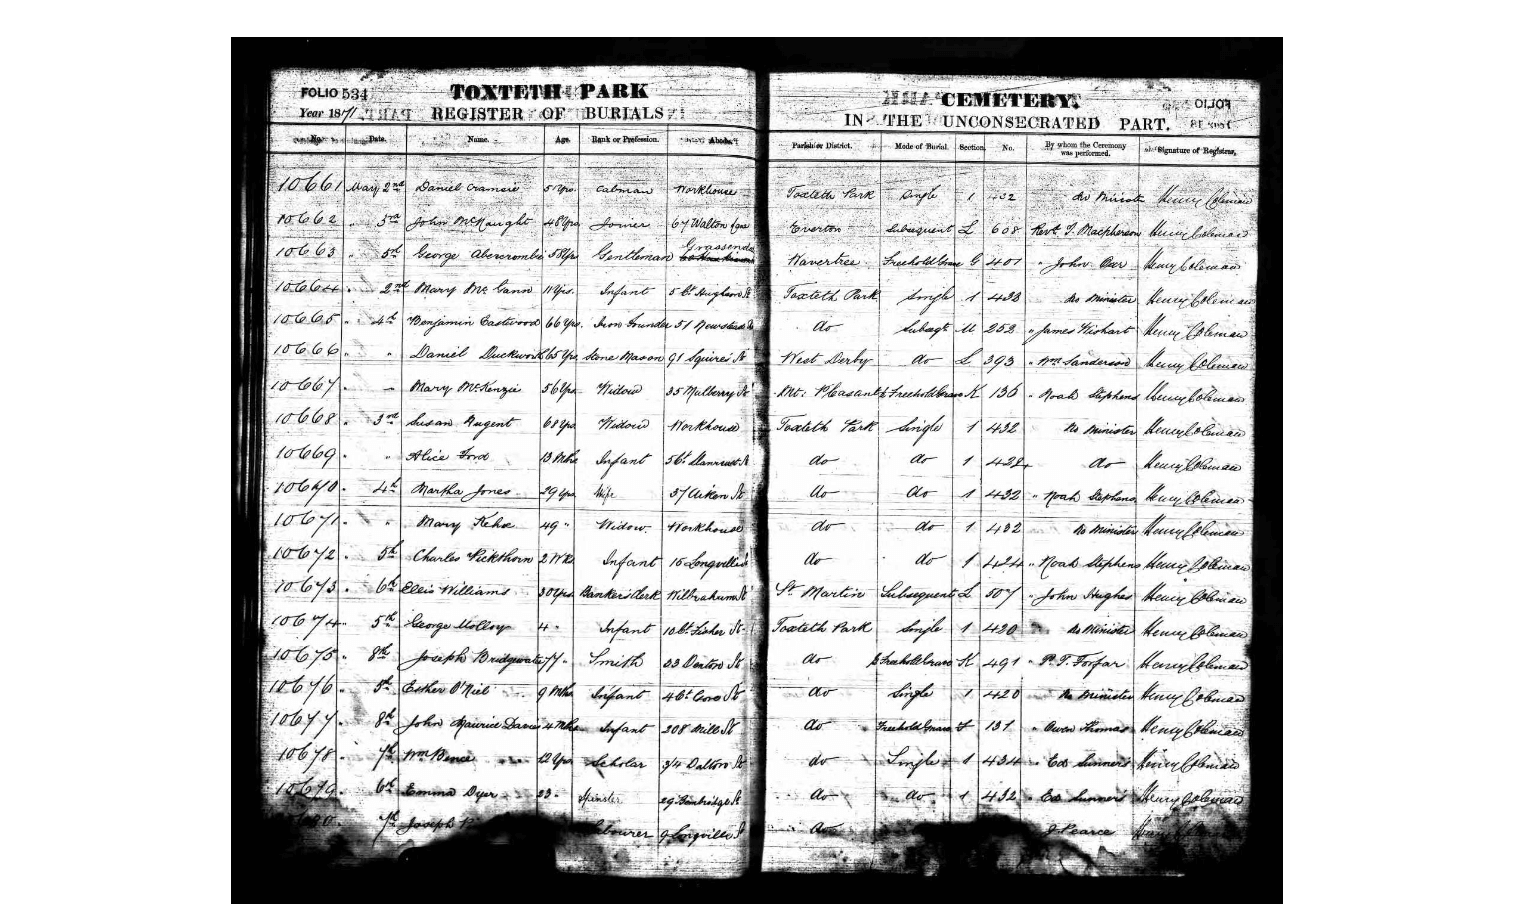 FOLIO 534 TOXTETH PARK CEMETERY. FOLIO
Year 1871 REGISTER OF BURIALS IN THE UNCONSECRATED PART.
No. Date. Name. Age. Rank or Profession. Abode. Parish or District. Mode of Burial. Section. No. By whom the Ceremony was performed. Signature of Registrar.
10661 May 2nd Daniel Yrs. Cabman Workhouse Toxteth Park Single 1 432 No Minister Henry Coleman
10662 " 3rd John McNaught 48 Yrs Joiner 67 Walton Lane Everton Subsequent L 608 Revd. J. Macpherson Henry Coleman
10663 " 5th George Abercrombie 58 Yrs Gentleman Grassendale Wavertree Freehold Grave G 401 " John Henry Coleman
10664 " 2nd Mary McCann 11 Yrs. Infant 5 Ct Hughson St Toxteth Park Single 1 433 No Minister Henry Coleman
10665 " 4th Benjamin Eastwood 66 Yrs. Iron Founder 51 Newstead Rd do Subsqt M 252 " James Wishart Henry Coleman
10666 " " Daniel Duckworth 65 Yrs Stone Mason 91 Squires St West Derby do L 393 " Wm Sanderson Henry Coleman
10667 " " Mary McKenzie 56 Yrs Widow 35 Mulberry St Mt. Pleasant Freehold Grave K 136 " Noah Stephens Henry Coleman
10668 " 3rd Susan Nugent 68 Yrs Widow Workhouse Toxteth Park Single 1 432 No Minister Henry Coleman
10669 " Alice Ford 13 Mths Infant 5 Ct. Llanrwst St do do 1 422 do Henry Coleman
10670 " 4th Martha Jones 29 Yrs. Wife 57 Aiken St do do 1 432 " Noah Stephens Henry Coleman
10671 " " Mary Kehoe 49 " Widow. Workhouse do do 1 432 No Minister Henry Coleman
10672 " 5th Charles Pickthorn 2 Wks Infant 15 Longville St do do 1 424 " Noah Stephens Henry Coleman
10673 " 6th Ellis Williams 30 Yrs Bankers Clerk Wilbraham St St. Martin Subsequent L 507 " John Hughes Henry Coleman
10674 " 5th George Molloy 4 " Infant 10 Ct. Fisher St Toxteth Park Single 1 420 No Minister Henry Coleman
10675 " 8th Joseph Bridgewater 77 " Smith 33 Denton St do Freehold Grave K 491 " P. T. Forfar Henry Coleman
10676 " 5th Esther O'Niel 9 Mths Infant 4 Ct St do Single 1 420 No Minister Henry Coleman
10677 " 8th John Maurice Davies 4 Mths Infant 208 Mill St do Freehold Grave F 131 " Owen Thomas Henry Coleman
10678 " 7th Wm Bence 12 Yrs. Scholar 34 Dalton St do Single 1 434 " Ed Sumners Henry Coleman
10679 " 6th Emma Dyer 23 " Spinster 29 Bembridge St do do 1 432 " Ed Sumners Henry Coleman
7th Joseph Labourer 9 Longville St do J Pearce Henry Coleman